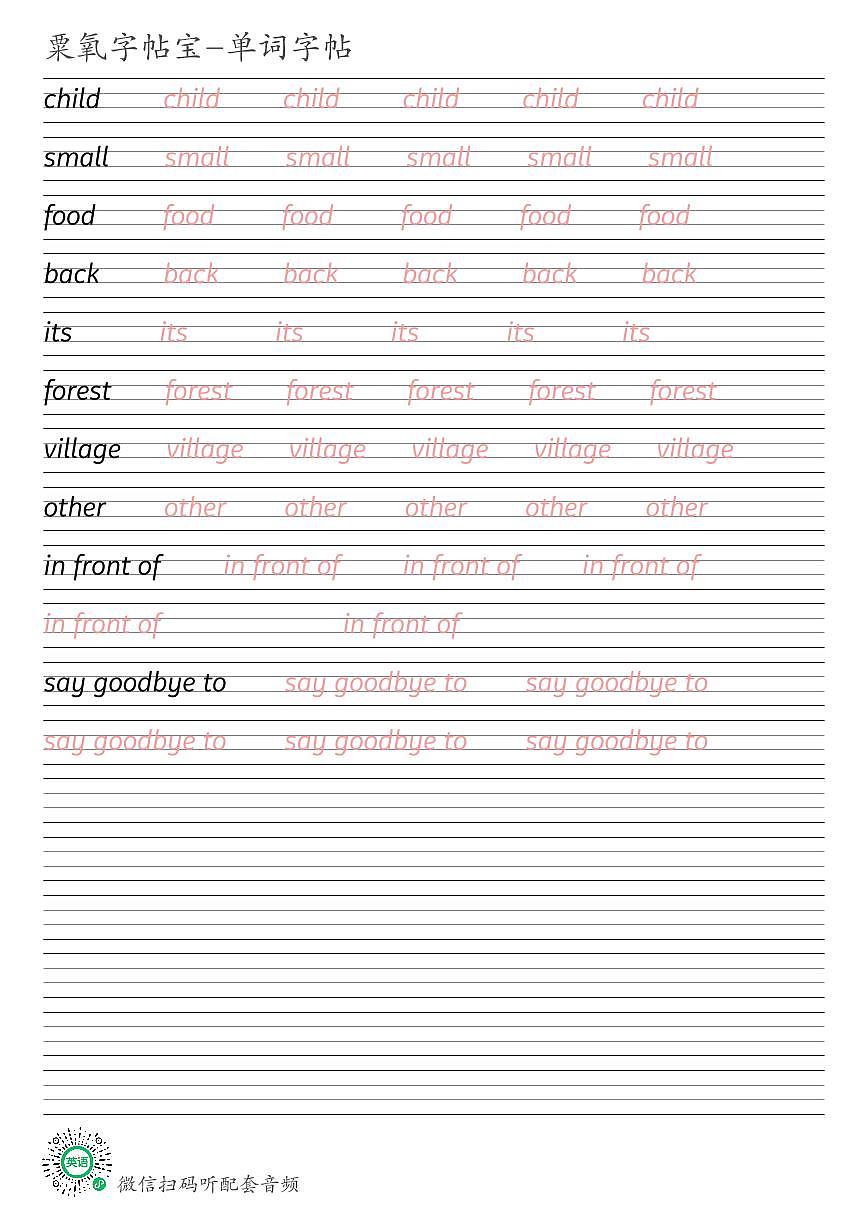 粟氧字帖宝-单词字帖
child child child child child child
small small small small small small
food food food food food food
back back back back back back
its its its its its its
forest forest forest forest forest forest
village village village village village village
other other other other other other
in front of in front of in front of in front of
in front of in front of
say goodbye to say goodbye to say goodbye to
say goodbye to say goodbye to say goodbye to
英语
微信扫码听配套音频